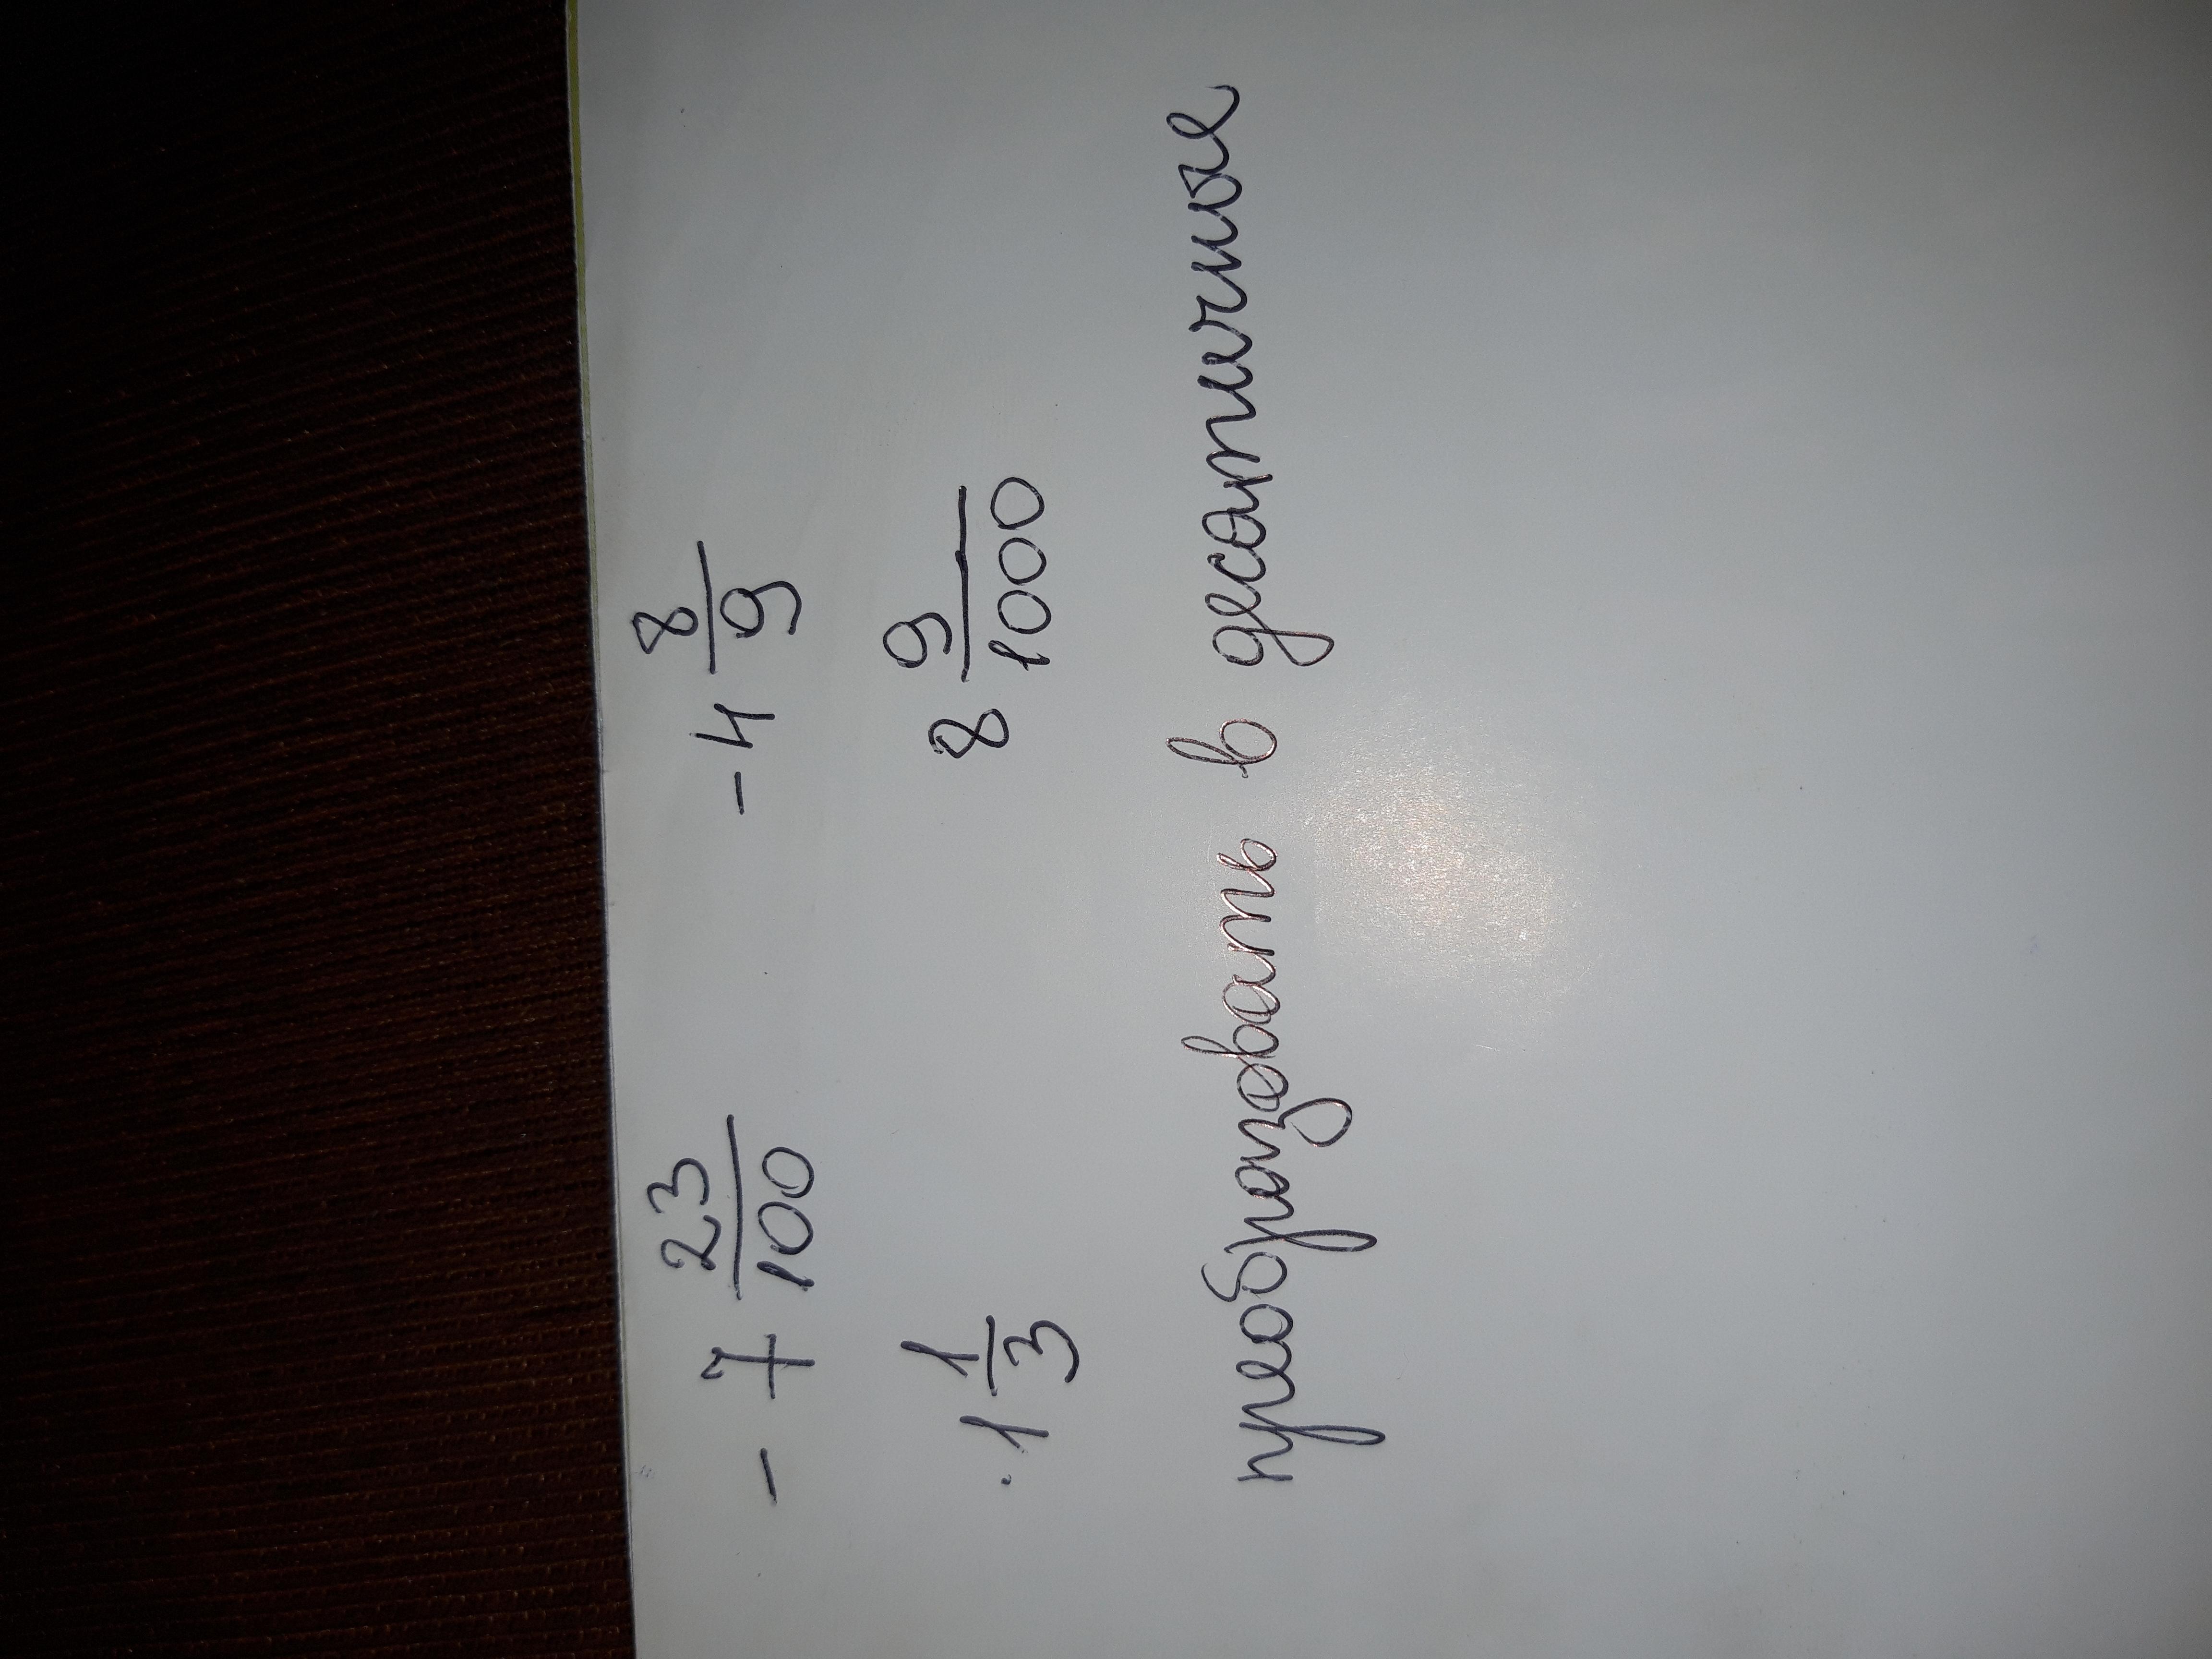 - 7 23/100 - 4 8/9
· 1 1/3 8 9/1000
преобразовать в десятичная